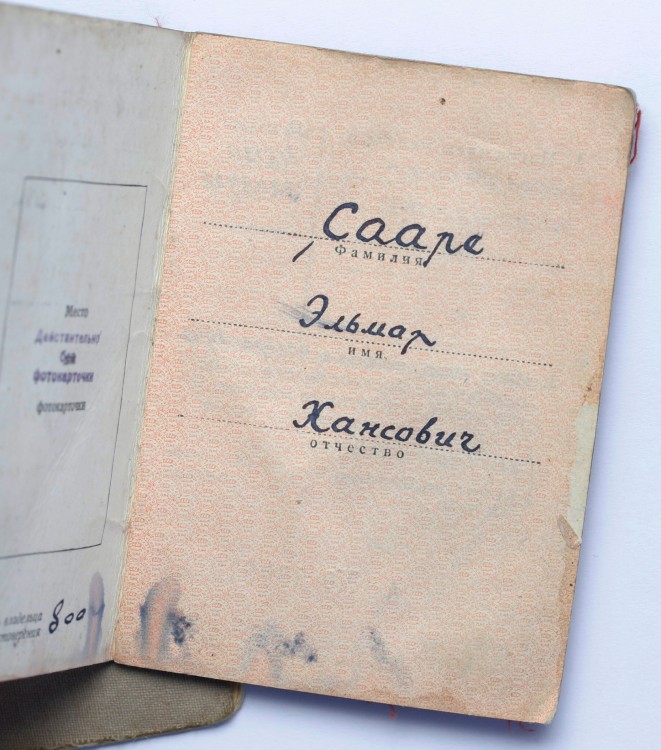 Место
Действительно
без
фотокарточки
фотокарточки
владельца
Сааре
Фамилия
Эльмар
имя
Хансович
отчество